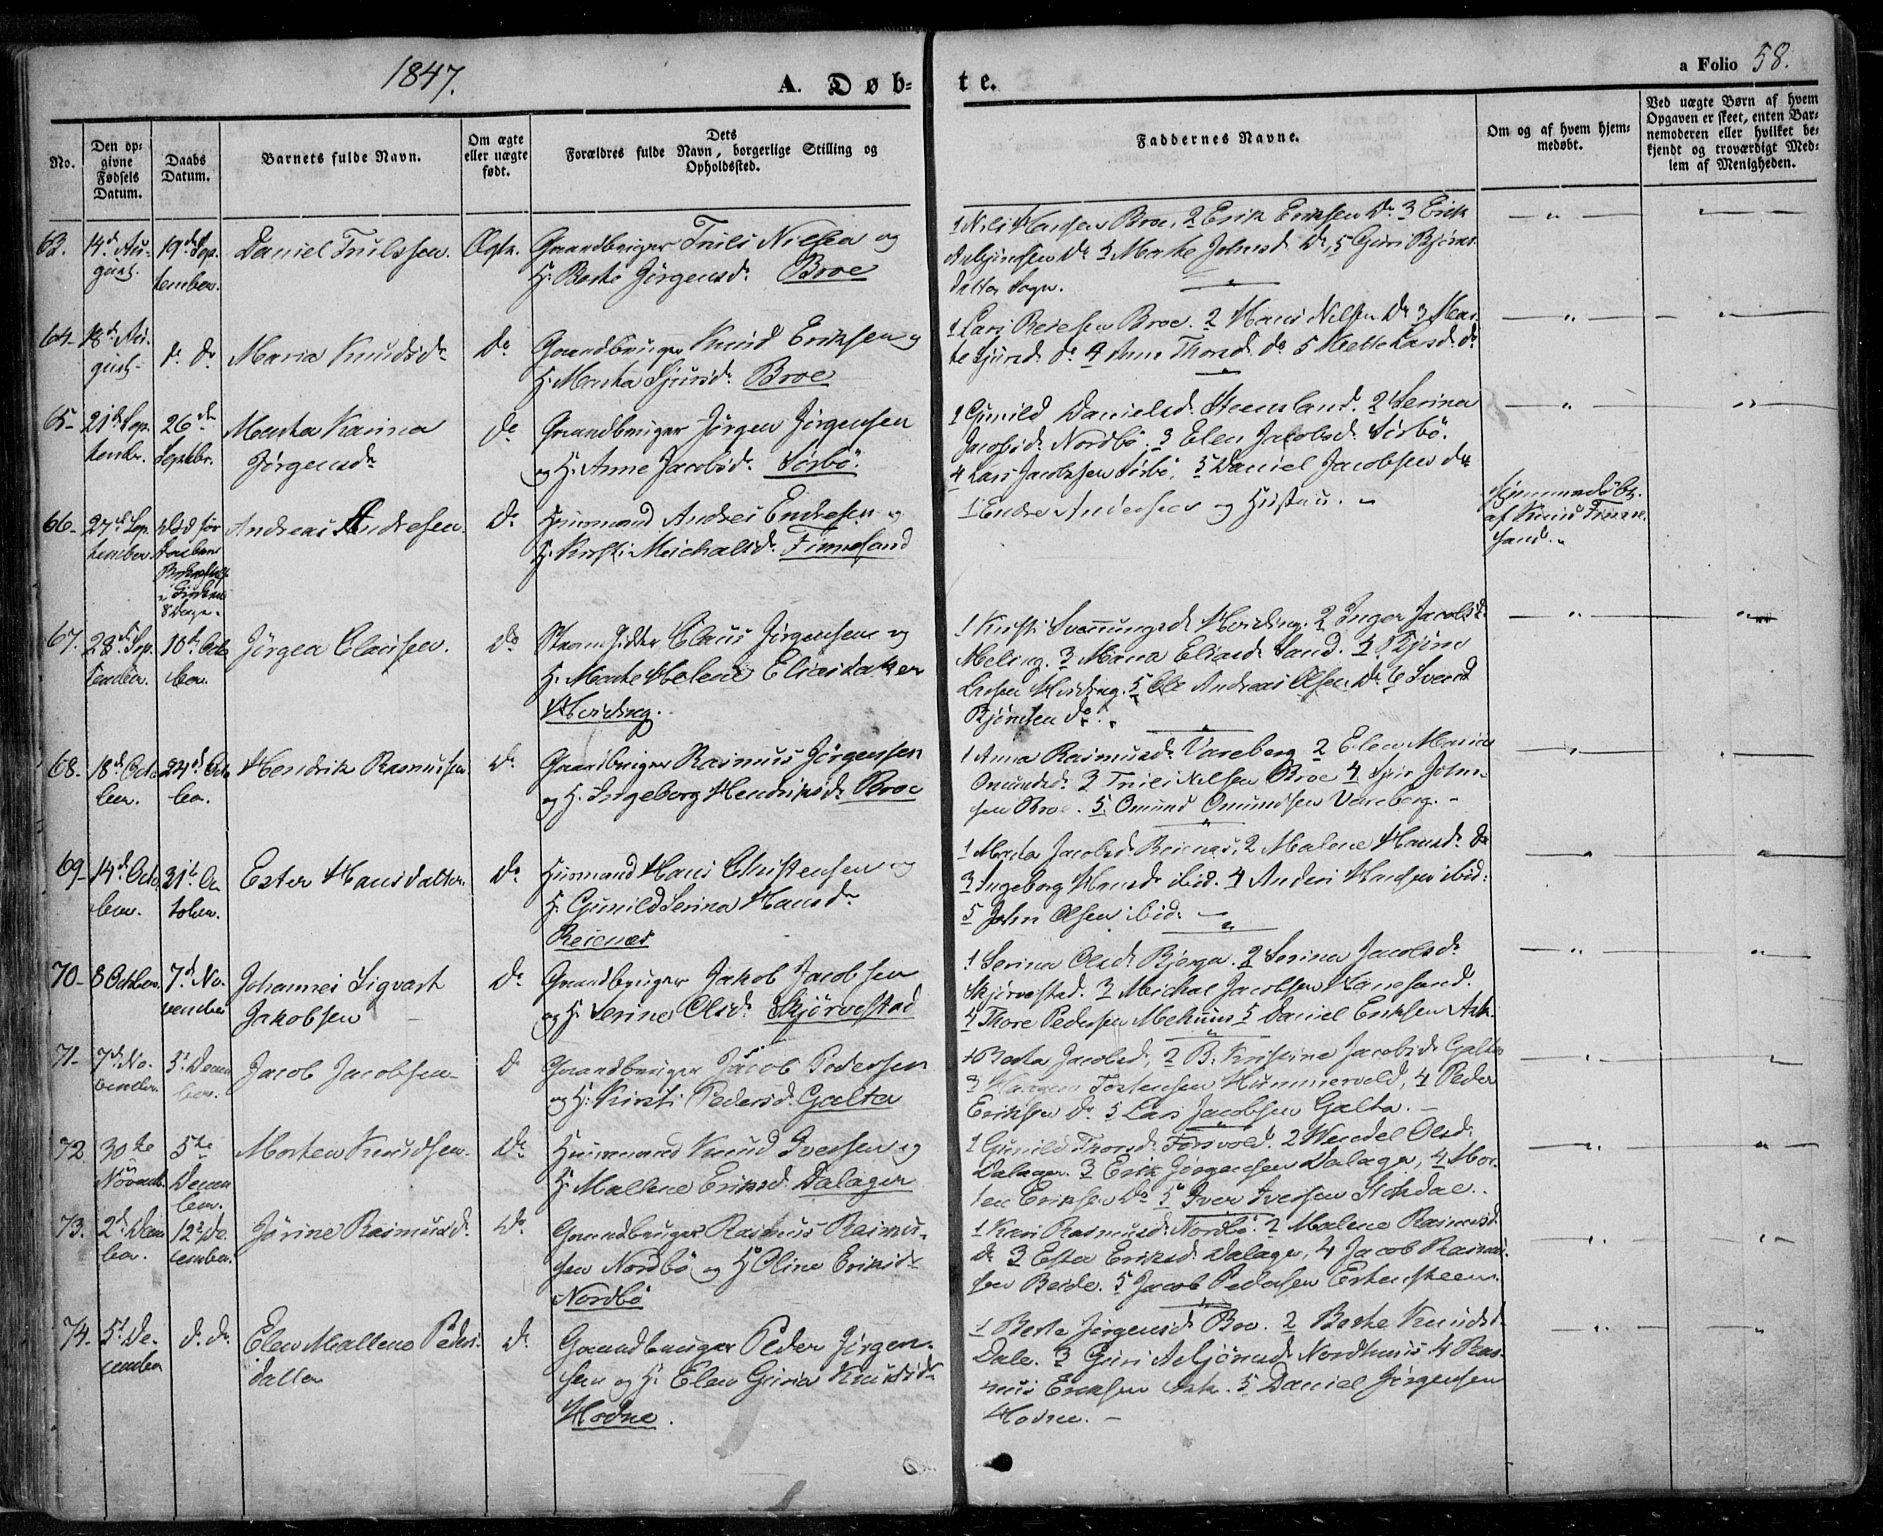 1847.
A. Døb-
te.
a Folio 58.
No.
Den op-
givne
Fødsels
Datum.
Daabs
Datum.
Barnets fulde Navn.
Om ægte
eller uægte
født.
Dets
Forældres fulde Navn, borgerlige Stilling og
Opholdssted.
Faddernes Navne.
Om og af hvem hjem-
medøbt.
Ved uægte Børn af hvem
Opgaven er skeet, enten Bar-
nemoderen eller hvilket be-
kjendt og troværdigt Med-
lem af Menigheden.
63. 14d Au-
gust.
19d Sep-
tember.
Daniel Truilssen.
Ægte.
Gaardbruger Truls Nielsen og
H. Berte Jörgensd. Broe
1 Nils Hansen Broe, 2 Erik Eriksen Do 3 Erik
Asbjönsen Do 4 Marte Johnsd. Do, 5 Guri Björns
datter Sogn.
64. 18d Au-
gust.
d. Do
Maria Knudsdr
Do
Gaardbruger Knud Eriksen og
H. Marta Sjursdr Broe
1 Lars Reiersen Broe. 2 Hans Nilsen Do 3 Mar-
te Sjursd. do 4 Anna Thorsd. do 5 Mette Larsd. do
65. 21d Sep-
tembr.
26de
Septbr.
Marta Karina
Jörgensdr
Do
Gaardbruger Jörgen Jörgensen
og H. Anne Jacobsdr Sörbö.
1 Gunild Danielsd. Steensland. 2 Serina
Jacobsdr Nordbö. 3 Elen Jacobsd. Sörbö.
4 Lars Jacobsen Sörbö. 5 Daniel Jacobsen do
66. 27d Sep-
tember
Död för
8 Dage.
Andreas Andresen.
Do
Huusmand Andres Endresen og
H. Kirsti Meichalsdr Finnesand
1 Endre Andersen og Hustru.
Hjemmedöbt
af Knud Finne-
sand.
67. 28d Sep-
tember.
10d Octo-
ber.
Jörgen Clausen.
Do
Claus Jörgensen og
H. Marte Helene Eliasdatter
Hviding.
1 Kirsti Svenningsd. Hviding. 2 Inger Jacobsd.
Meling. 3 Maria Eliasd. Sand. 4 Björn
Larsen Hviding. 5 Ole Andreas Olsen Do 6 Svend
Björnsen do.
68. 18d Octo-
ber.
24d Octo-
ber.
Hendrik Rasmussen
Do
Gaardbruger Rasmus Jörgensen
og H. Ingeborg Hendriksdr Broe
1 Anna Rasmusd. Vareberg 2 Elen Maria
Omundsd. 3 Truls Nilsen Broe 4 John-
sen Broe. 5 Omund Omundsen Vareberg.
69. 14d Octo-
ber.
31te Oc-
tober.
Ester Hansdatter.
Do
Huusmand Hans Christensen og
H. Gunild Serina Hansdr
Reienæs
1 Marta Jacobsd. Reienæs, 2 Malene Hansd. Do
3 Ingeborg Hansd. ibid. 4 Anders Hansen ibid:
5 John Olsen ibid.
70. 8 October.
7d No-
vember
Johannes Sigvart
Jakobsen
Do
Gaardbruger Jakob Jacobsen
og H. Serine Olsd. Skjörvestad
1 Serina Olsd. Bjerga. 2 Serina Jacobsd.
Skjörvestad. 3 Meichal Jacobsen Hanesand.
4 Thore Pedersen Mehuus 5 Daniel Eriksen Ask.
71. 7d No-
vember.
5t Decem-
ber.
Jacob Jacobsen
D
Gaardbruger Jacob Pedersen
og H. Kirsti Pedersd. Galta
1 Berta Jacobsd. 2 B. Kristine Jacobsd. Galta
3 Torstensen Hummervold, 4 Peder
Eriksen Do 5 Lars Jacobsen Galta.
72. 30te
Novemb.
5te
Decem-
ber.
Morten Knudsen
Do
Huusmand Knud Iversen og
H. Mallene Eriksd. Dalager
1 Gunild Thorsd. 2 Wendel Olsd.
Dalager. 3 Erik Jörgensen Dalager, 4 Mor-
ten Eriksen Do 5 Iver Iversen Stokdal.
73. 2d Decem-
ber.
12t De-
cember.
Jörine Rasmusd.
Do
Gaardbruger Rasmus Rasmus-
sen Nordbö og H. Oline Eriksdr
Nordbö
1 Kari Rasmusd. Nordbö. 2 Malene Rasmusd.
do 3 Ester Eriksd. Dalager, 4 Jacob Rasmus-
sen Beide. 5 Jacob Pedersen Erkensteen.
74. 5t De-
cember
d. do
Elen Mallene Peders-
datter
Do
Gaardbruger Peder Jörgen-
sen og H. Elen Guria Knudsdr
Hodne.
1 Berte Jörgensd. Broe. 2 Berte Knudsd.
Dale. 3 Guri Asbjörnsd. Nordhuus 4 Ras-
mus Eriksen Ask. 5 Daniel Jörgensen
Hodne.